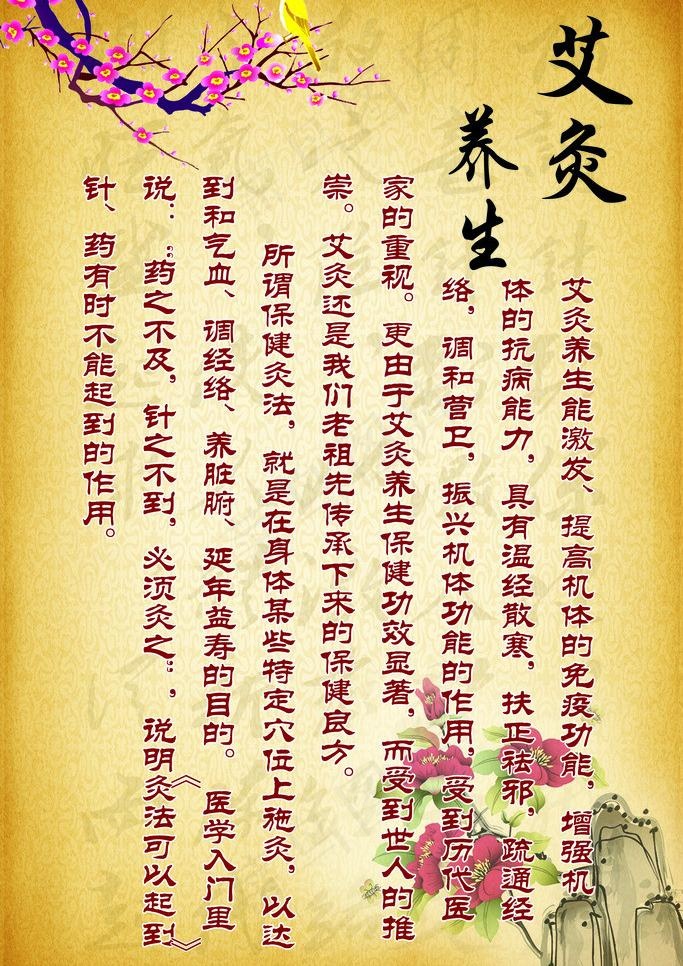 艾灸
养生
艾灸养生能激发、提高机体的免疫功能，增强机
体的抗病能力，具有温经散寒，扶正祛邪，疏通经
络，调和营卫，振兴机体功能的作用，受到历代医
家的重视。更由于艾灸养生保健功效显著，而受到世人的推
崇。艾灸还是我们老祖先传承下来的保健良方。
所谓保健灸法，就是在身体某些特定穴位上施灸，以达
到和气血、调经络、养脏腑、延年益寿的目的。《医学入门里》
说：“药之不及，针之不到，必须灸之”，说明灸法可以起到
针、药有时不能起到的作用。